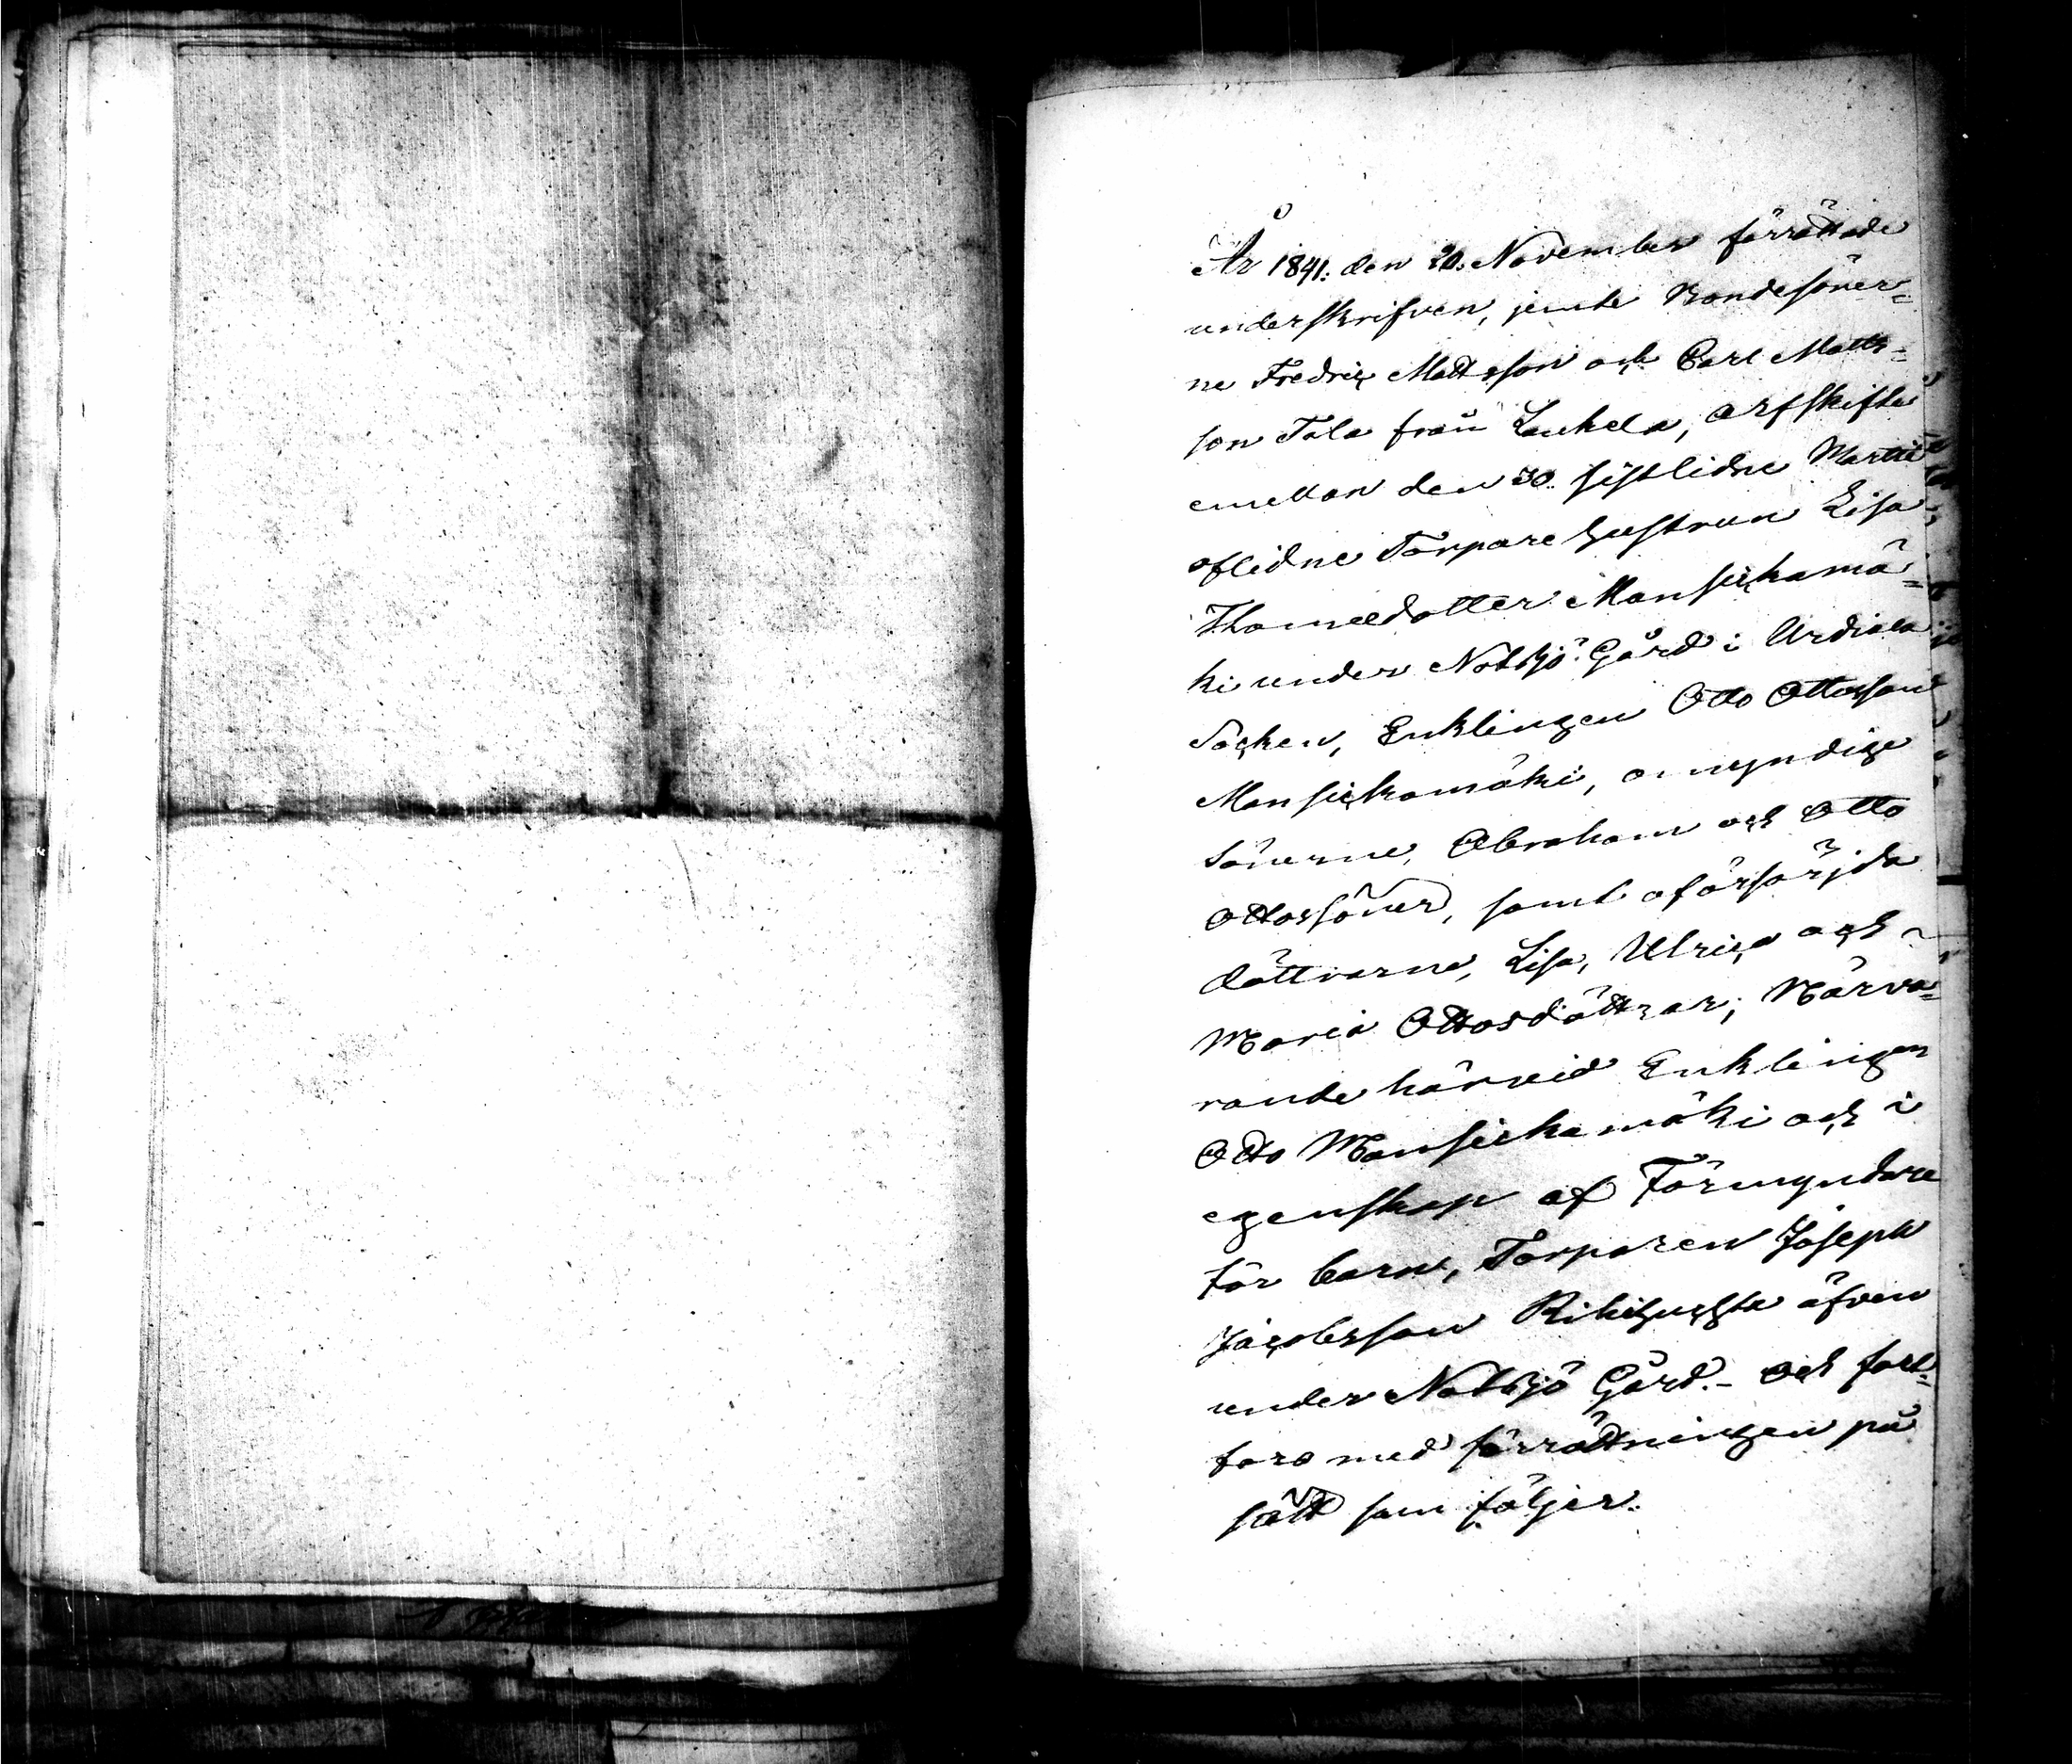 År 1841. den 20. November förrättade
underskrifven, jemte Bondesöner=
ne Fredric Mattsson och Carl Matts=
son Tola från Laukela, arfskifte
emellan den 30. sistlidne Martii
aflidne Torpare hustrun Lisa
Thomædotter Mansickamä=
ki under Notsjö Gård i Urdiala
Socken, Enklingen Otto Ottosson
Mansickamäki, omyndige
Sönerne, Abraham och Otto
Ottossöner, samt oförsörjda
döttrarne, Lisa, Ulrica och
Maria Ottosdöttrar; Närva=
rande härvid Enklingen
Otto Mansickamäki och i
egenskap af Förmyndare
för barnen, Torparen Joseph
Jacobsson äfven
under Notsjö Gård. - och fort=
fors med förrättningen på
sätt som följer.